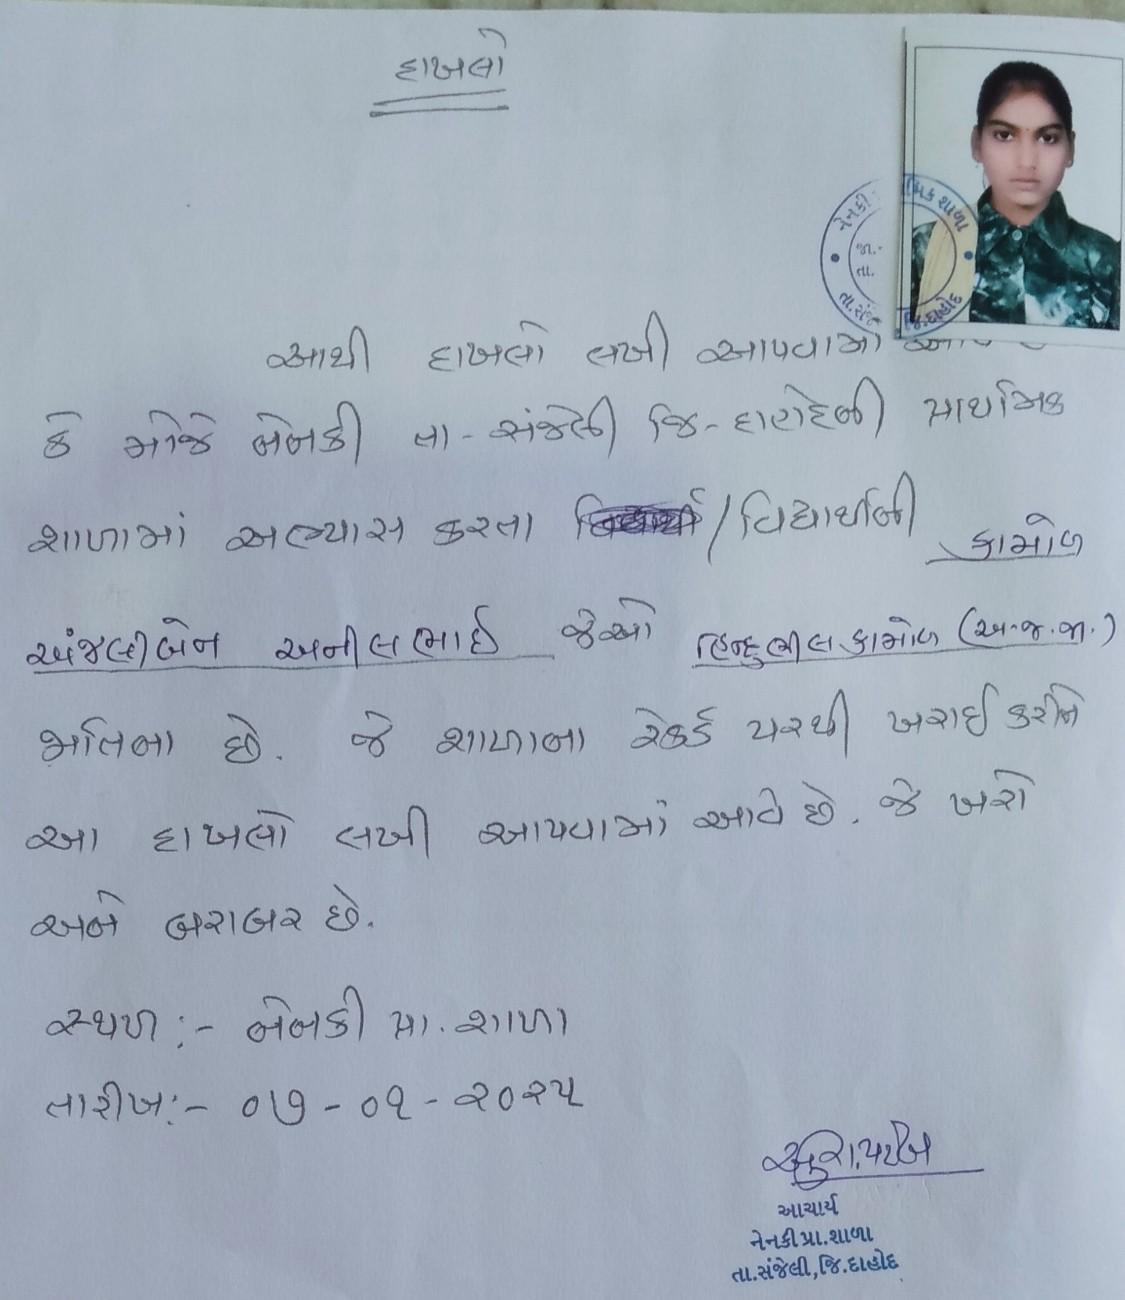 દાખલો
નેનકી મિક શાળા
જા.-
તા.
તા.સંજે જિ.દાહોદ
આથી દાખલો લખી આપવામાં
કે મોજે નેનકી તા-સંજેલી જિ-દાહોદની પ્રાથમિક
શાળામાં અભ્યાસ કરતા / વિદ્યાર્થીની કામોળ
અંજલીબેન અનીલભાઈ જેઓ હિન્દુ ભીલ કામોળ (અ.જ.જા.)
જાતિના છે. જે શાળાના રેકર્ડ પરથી ખરાઈ કરીને
આ દાખલો લખી આપવામાં આવે છે. જે ખરો
અને બરાબર છે.
સ્થળ :- નેનકી પ્રા. શાળા
તારીખ:- ૦૭-૦૧-૨૦૨૫
આચાર્ય
નેનકી પ્રા.શાળા
તા.સંજેલી,જિ.દાહોદ